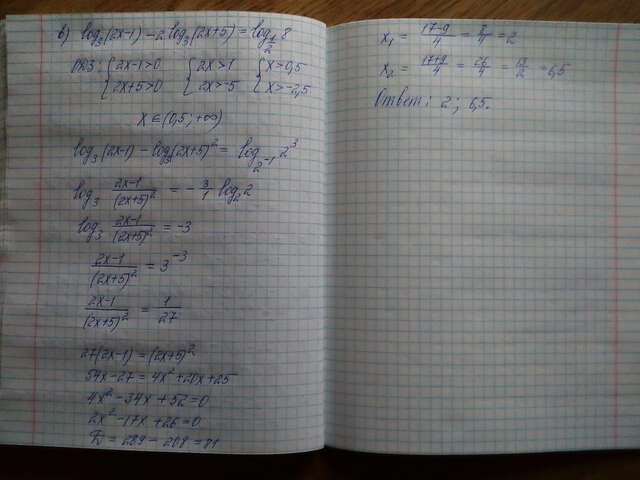 в) log₃(2x-1) - 2 log₃(2x+5) = log_{1/2} 8
ОДЗ: { 2x-1>0 { 2x>1 { x>0,5
2x+5>0 2x>-5 x>-2,5
x∈(0,5; +∞)
log₃(2x-1) - log₃(2x+5)² = log_{2⁻¹} 2³
log₃ (2x-1)/(2x+5)² = - 3/1 log₂2
log₃ (2x-1)/(2x+5)² = -3
(2x-1)/(2x+5)² = 3⁻³
(2x-1)/(2x+5)² = 1/27
27(2x-1) = (2x+5)²
54x-27 = 4x²+20x+25
4x²-34x+52=0
2x²-17x+26=0
D = 289 - 208 = 81
x₁ = (17-9)/4 = 8/4 = 2
x₂ = (17+9)/4 = 26/4 = 13/2 = 6,5
Ответ: 2; 6,5.